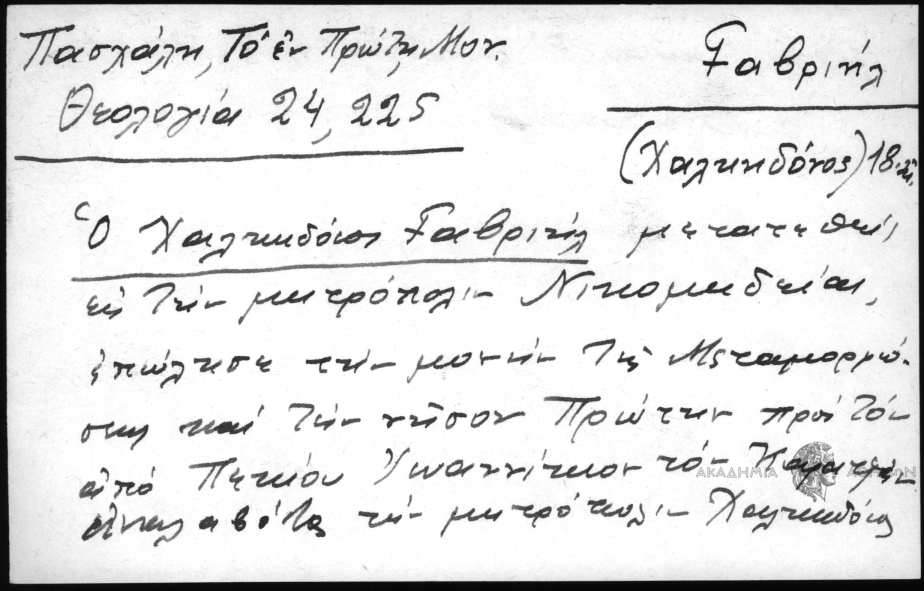 Πασχάλη, Τό ἐν Πρώτῃ Μον.
Θεολογία 24, 225
Γαβριήλ
(Χαλκηδόνος) 18
Ὁ Χαλκηδόνος Γαβριήλ μετατεθείς
εἰς τήν μητρόπολιν Νικομηδείας,
ἐπώλησε τήν μονήν τῆς Μεταμορφώ-
σεως καί τήν νῆσον Πρώτην πρός τόν
ἀπό Πετκίου Ἰωαννίκιον τόν
ἀναλαβόντα τήν μητρόπολιν Χαλκηδόνος
ΑΚΑΔΗΜΙΑ ΑΘΗΝΩΝ